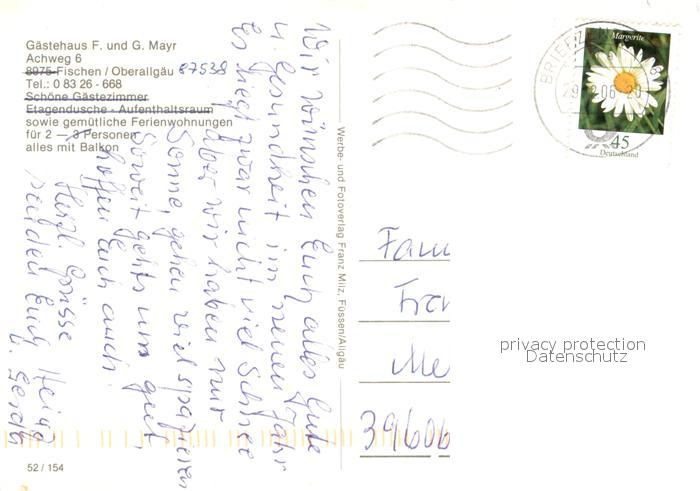 Gästehaus F. und G. Mayr
Achweg 6
8975 Fischen / Oberallgäu 87538
Tel.: 0 83 26 - 668
Schöne Gästezimmer
Etagendusche - Aufenthaltsraum
sowie gemütliche Ferienwohnungen
für 2 — 3 Personen
alles mit Balkon
Wir wünschen Euch alles Gute
u. Gesundheit im neuen Jahr
Es liegt zwar nicht viel Schnee
aber wir haben nur
Sonne, gehen viel spazieren
Soweit gehts uns gut,
hoffen Euch auch.
Herzl. Grüsse
senden Euch Heinz
u. Gerda
52 / 154
Werbe- und Fotoverlag Franz Milz, Füssen/Allgäu
BRIEFZ
06
Margerite
45
Deutschland
Fam
Fra
Me
39606
privacy protection
Datenschutz